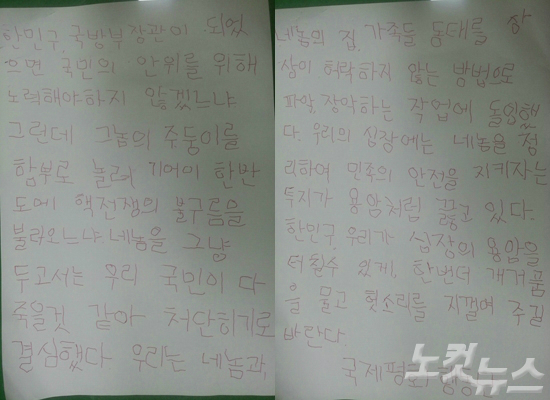 한민구 국방부장관이 되었
으면 국민의 안위를 위해
노력해야하지 않겠느냐
그런데 그놈의 주둥이를
함부로 놀려 기어이 한반
도에 핵전쟁의 불구름을
불러오느냐 네놈을 그냥
두고서는 우리 국민이 다
죽을것 같아 처단하기로
결심했다 우리는 네놈과,
네놈의 집, 가족들 동태를 상
상이 허락하지 않는 방법으로
파악, 장악하는 작업에 돌입했
다. 우리의 심장에는 네놈을 정
리하여 민족의 안전을 지키자는
투지가 용암처럼 끓고 있다.
한민구, 우리가 심장의 용암을
터칠수 있게, 한번더 개거품
을 물고 헛소리를 지껄여 주길
바란다.
국제평화
노컷뉴스